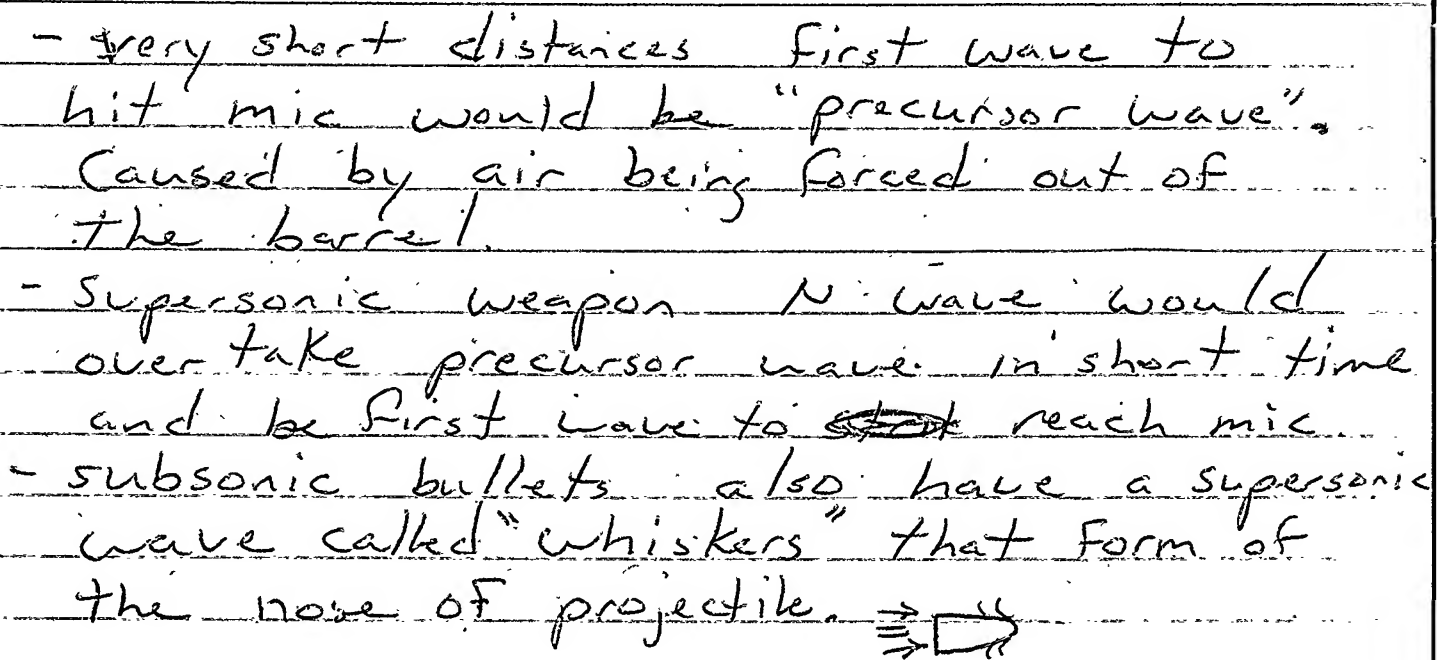 - very short distances first wave to
hit mic would be "precursor wave".
Caused by air being forced out of
the barrel.
- Supersonic weapon N wave would
over take precursor wave in short time
and be first wave to reach mic.
- subsonic bullets also have a supersonic
wave called "whiskers" that form of
the nose of projectile.